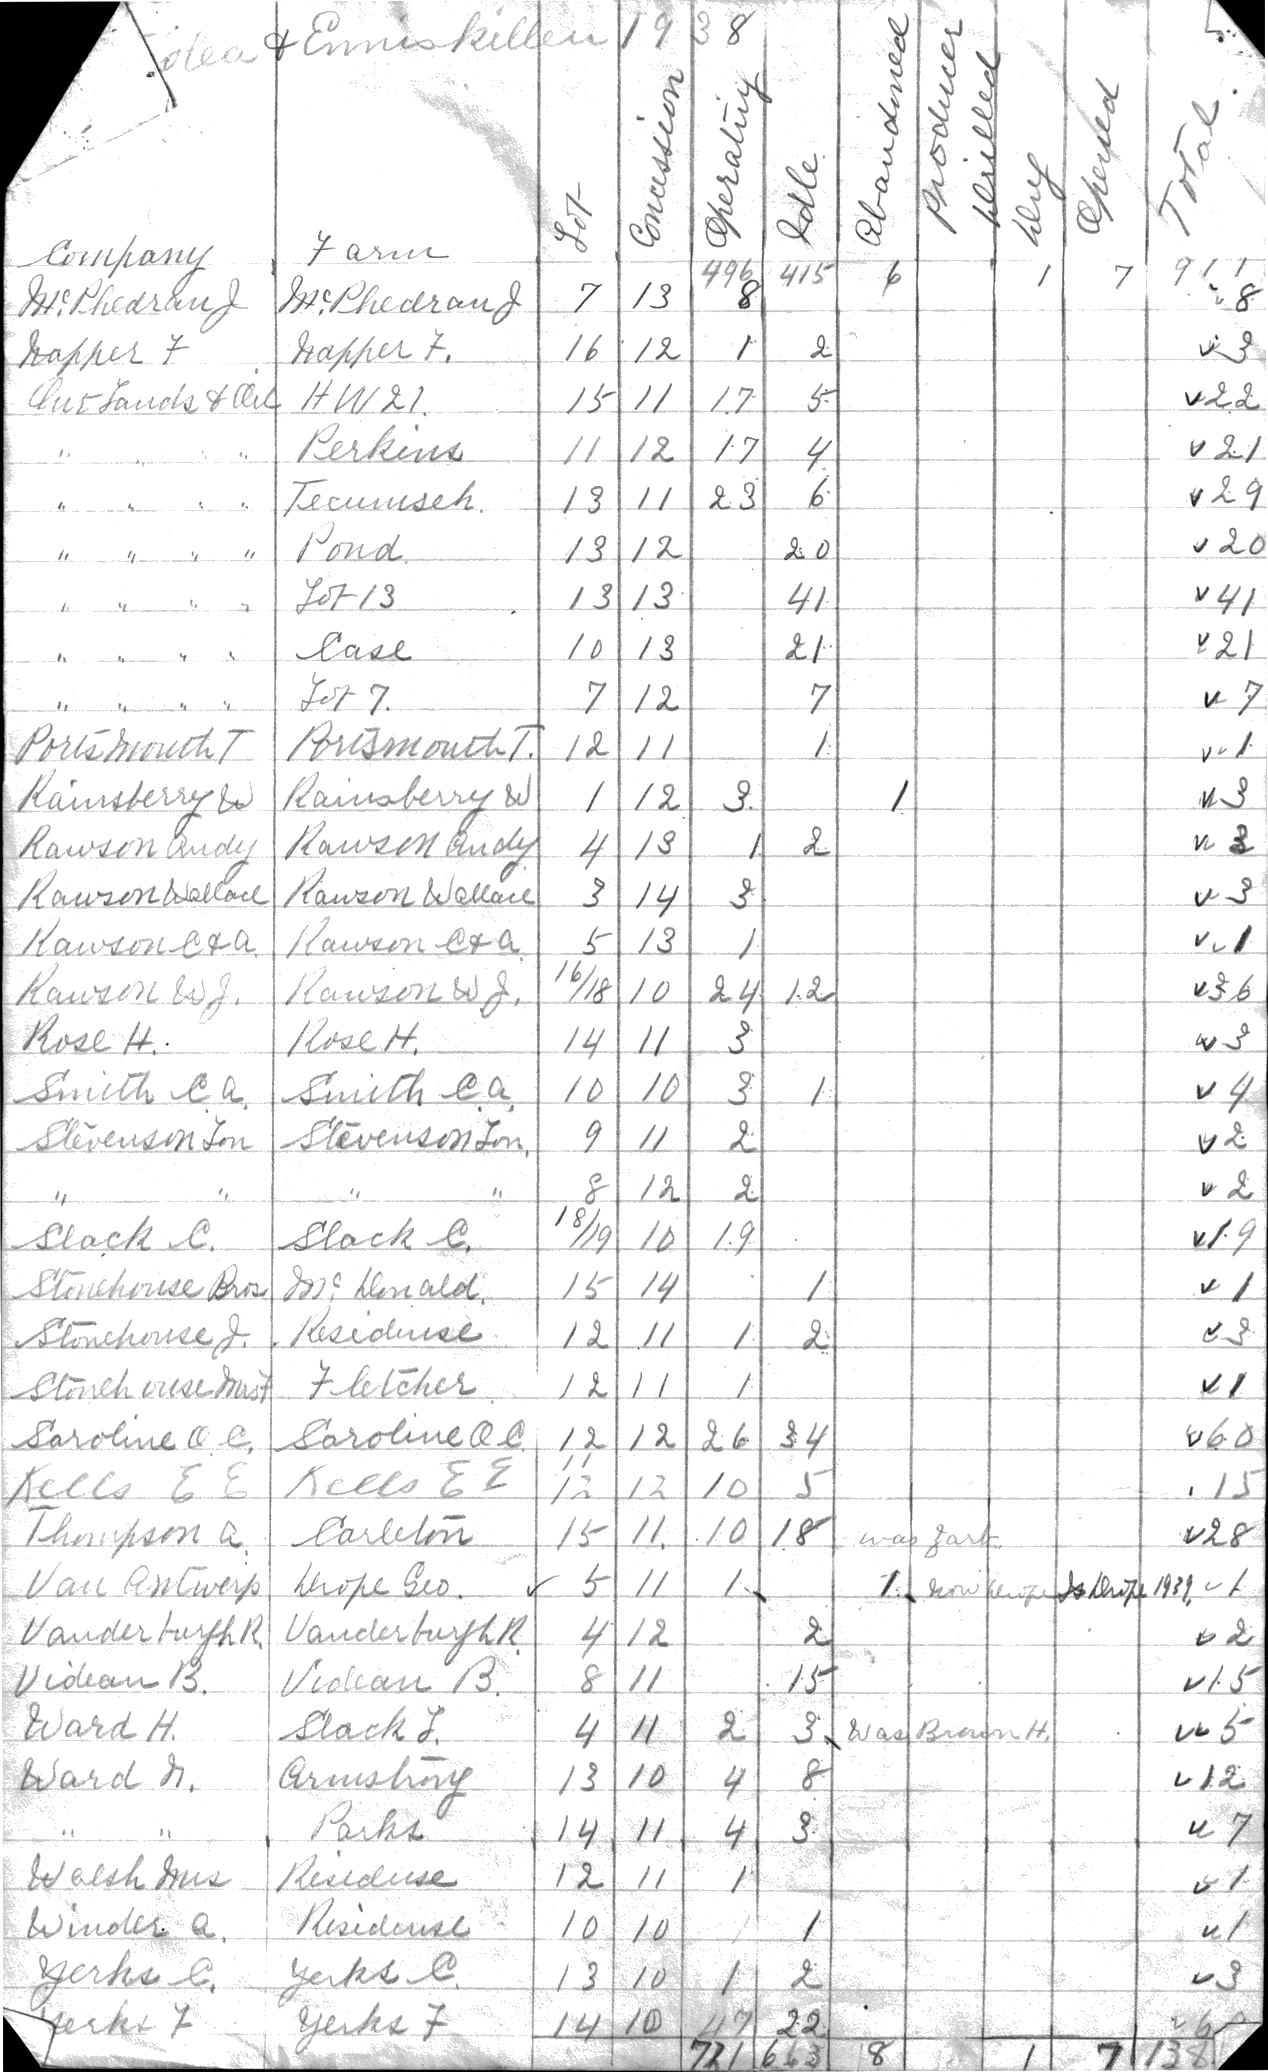 olea & Enniskillen 1938
Company Farm Lot Concession Operating Idle Abandoned Producer Drilled Dry Opened Total
496 415 6 1 7 911
McPhedran J McPhedran J 7 13 8 8
Napper F Napper F. 16 12 1 2 3
Ont Lands & Oil H W 21. 15 11 17 5 22
" " " " Perkins 11 12 17 4 21
" " " " Tecumseh. 13 11 23 6 29
" " " " Pond 13 12 20 20
" " " " Lot 13 13 13 41 41
" " " " Case 10 13 21 21
" " " " Lot 7. 7 12 7 7
Portsmouth T Portsmouth T. 12 11 1 1
Rainsberry W Rainsberry W 1 12 3 1 3
Rawson Andy Rawson Andy 4 13 1 2 3
Rawson Wallace Rawson Wallace 3 14 3 3
Rawson C & A. Rawson C & A. 5 13 1 1
Rawson W J. Rawson W J. 16/18 10 24 12 36
Rose H. Rose H. 14 11 3 3
Smith C. A. Smith C. A. 10 10 3 1 4
Stevenson Lon Stevenson Lon. 9 11 2 2
" " " " 8 12 2 2
Slack C. Slack C. 18/19 10 19 19
Stonehouse Bros McDonald. 15 14 1 1
Stonehouse J. Residense 12 11 1 2 3
Stonehouse Mrs F Fletcher 12 11 1 1
Saroline O. C. Saroline O C. 12 12 26 34 60
Kells E E Kells E E 11 12 12 10 5 15
Thompson A. Carleton 15 11 10 18 was Zark 28
Van Antwerp Drope Geo. ✓ 5 11 1 1 now Drope Is Drope 1939. 1
Vanderburgh R. Vanderburgh R. 4 12 2 2
Videan B. Videan B. 8 11 15 15
Ward H. Slack L. 4 11 2 3 Was Brown H. 5
Ward N. Armstrong 13 10 4 8 12
" " Parks 14 11 4 3 7
Walsh Mrs Residense 12 11 1 1
Winder A. Residense 10 10 1 1
Yerks C. Yerks C. 13 10 1 2 3
Yerks F Yerks F 14 10 47 22
721 663 8 1 7